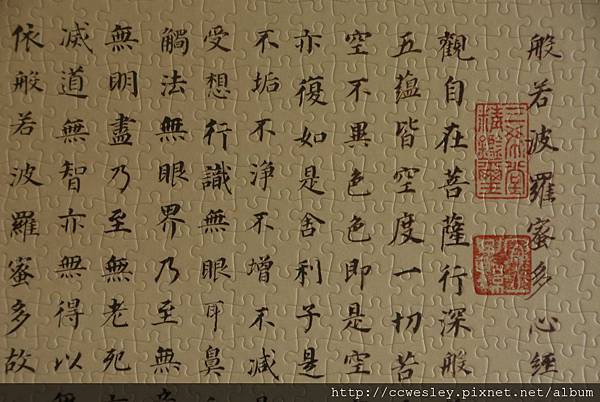 般若波羅蜜多心經
三希堂
精鑑璽
觀自在菩薩行深般
五蘊皆空度一切苦
空不異色色即是空
亦復如是舍利子是
不垢不淨不增不減
受想行識無眼耳鼻
觸法無眼界乃至無
無明盡乃至無老死
滅道無智亦無得以
依般若波羅蜜多故
http://ccwesley.pixnet.net/album